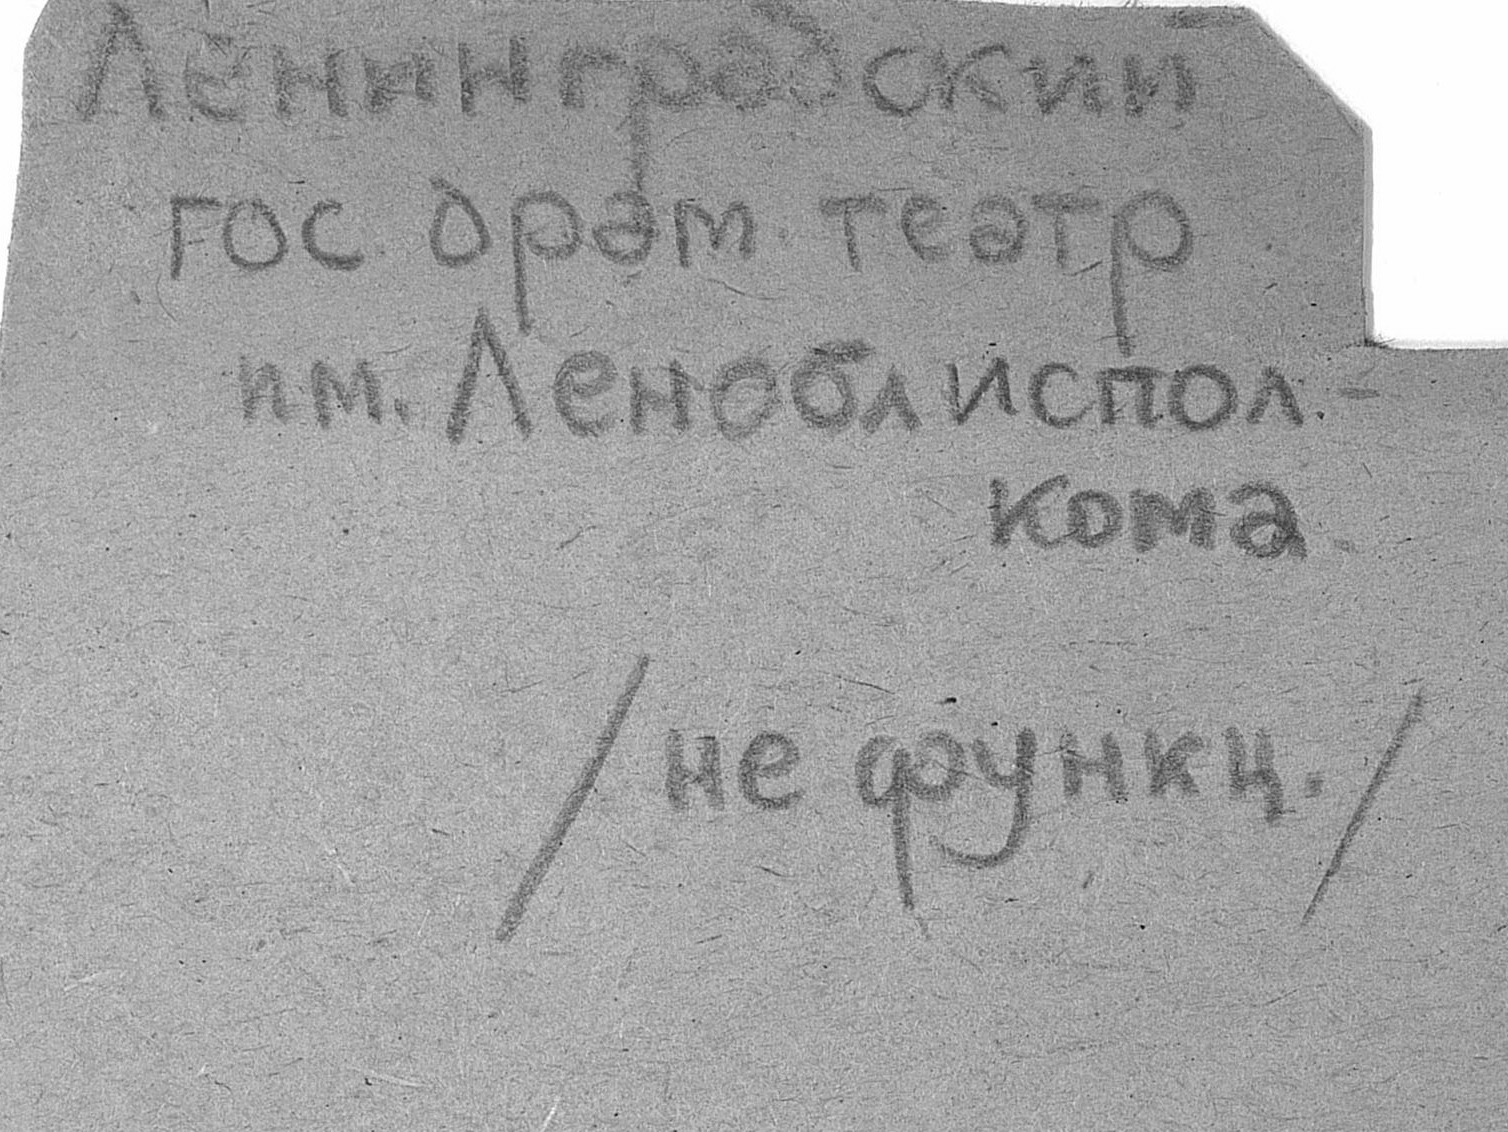 Ленинградский
гос. драм. театр
им. Леноблиспол-
кома.
/ не функц. /